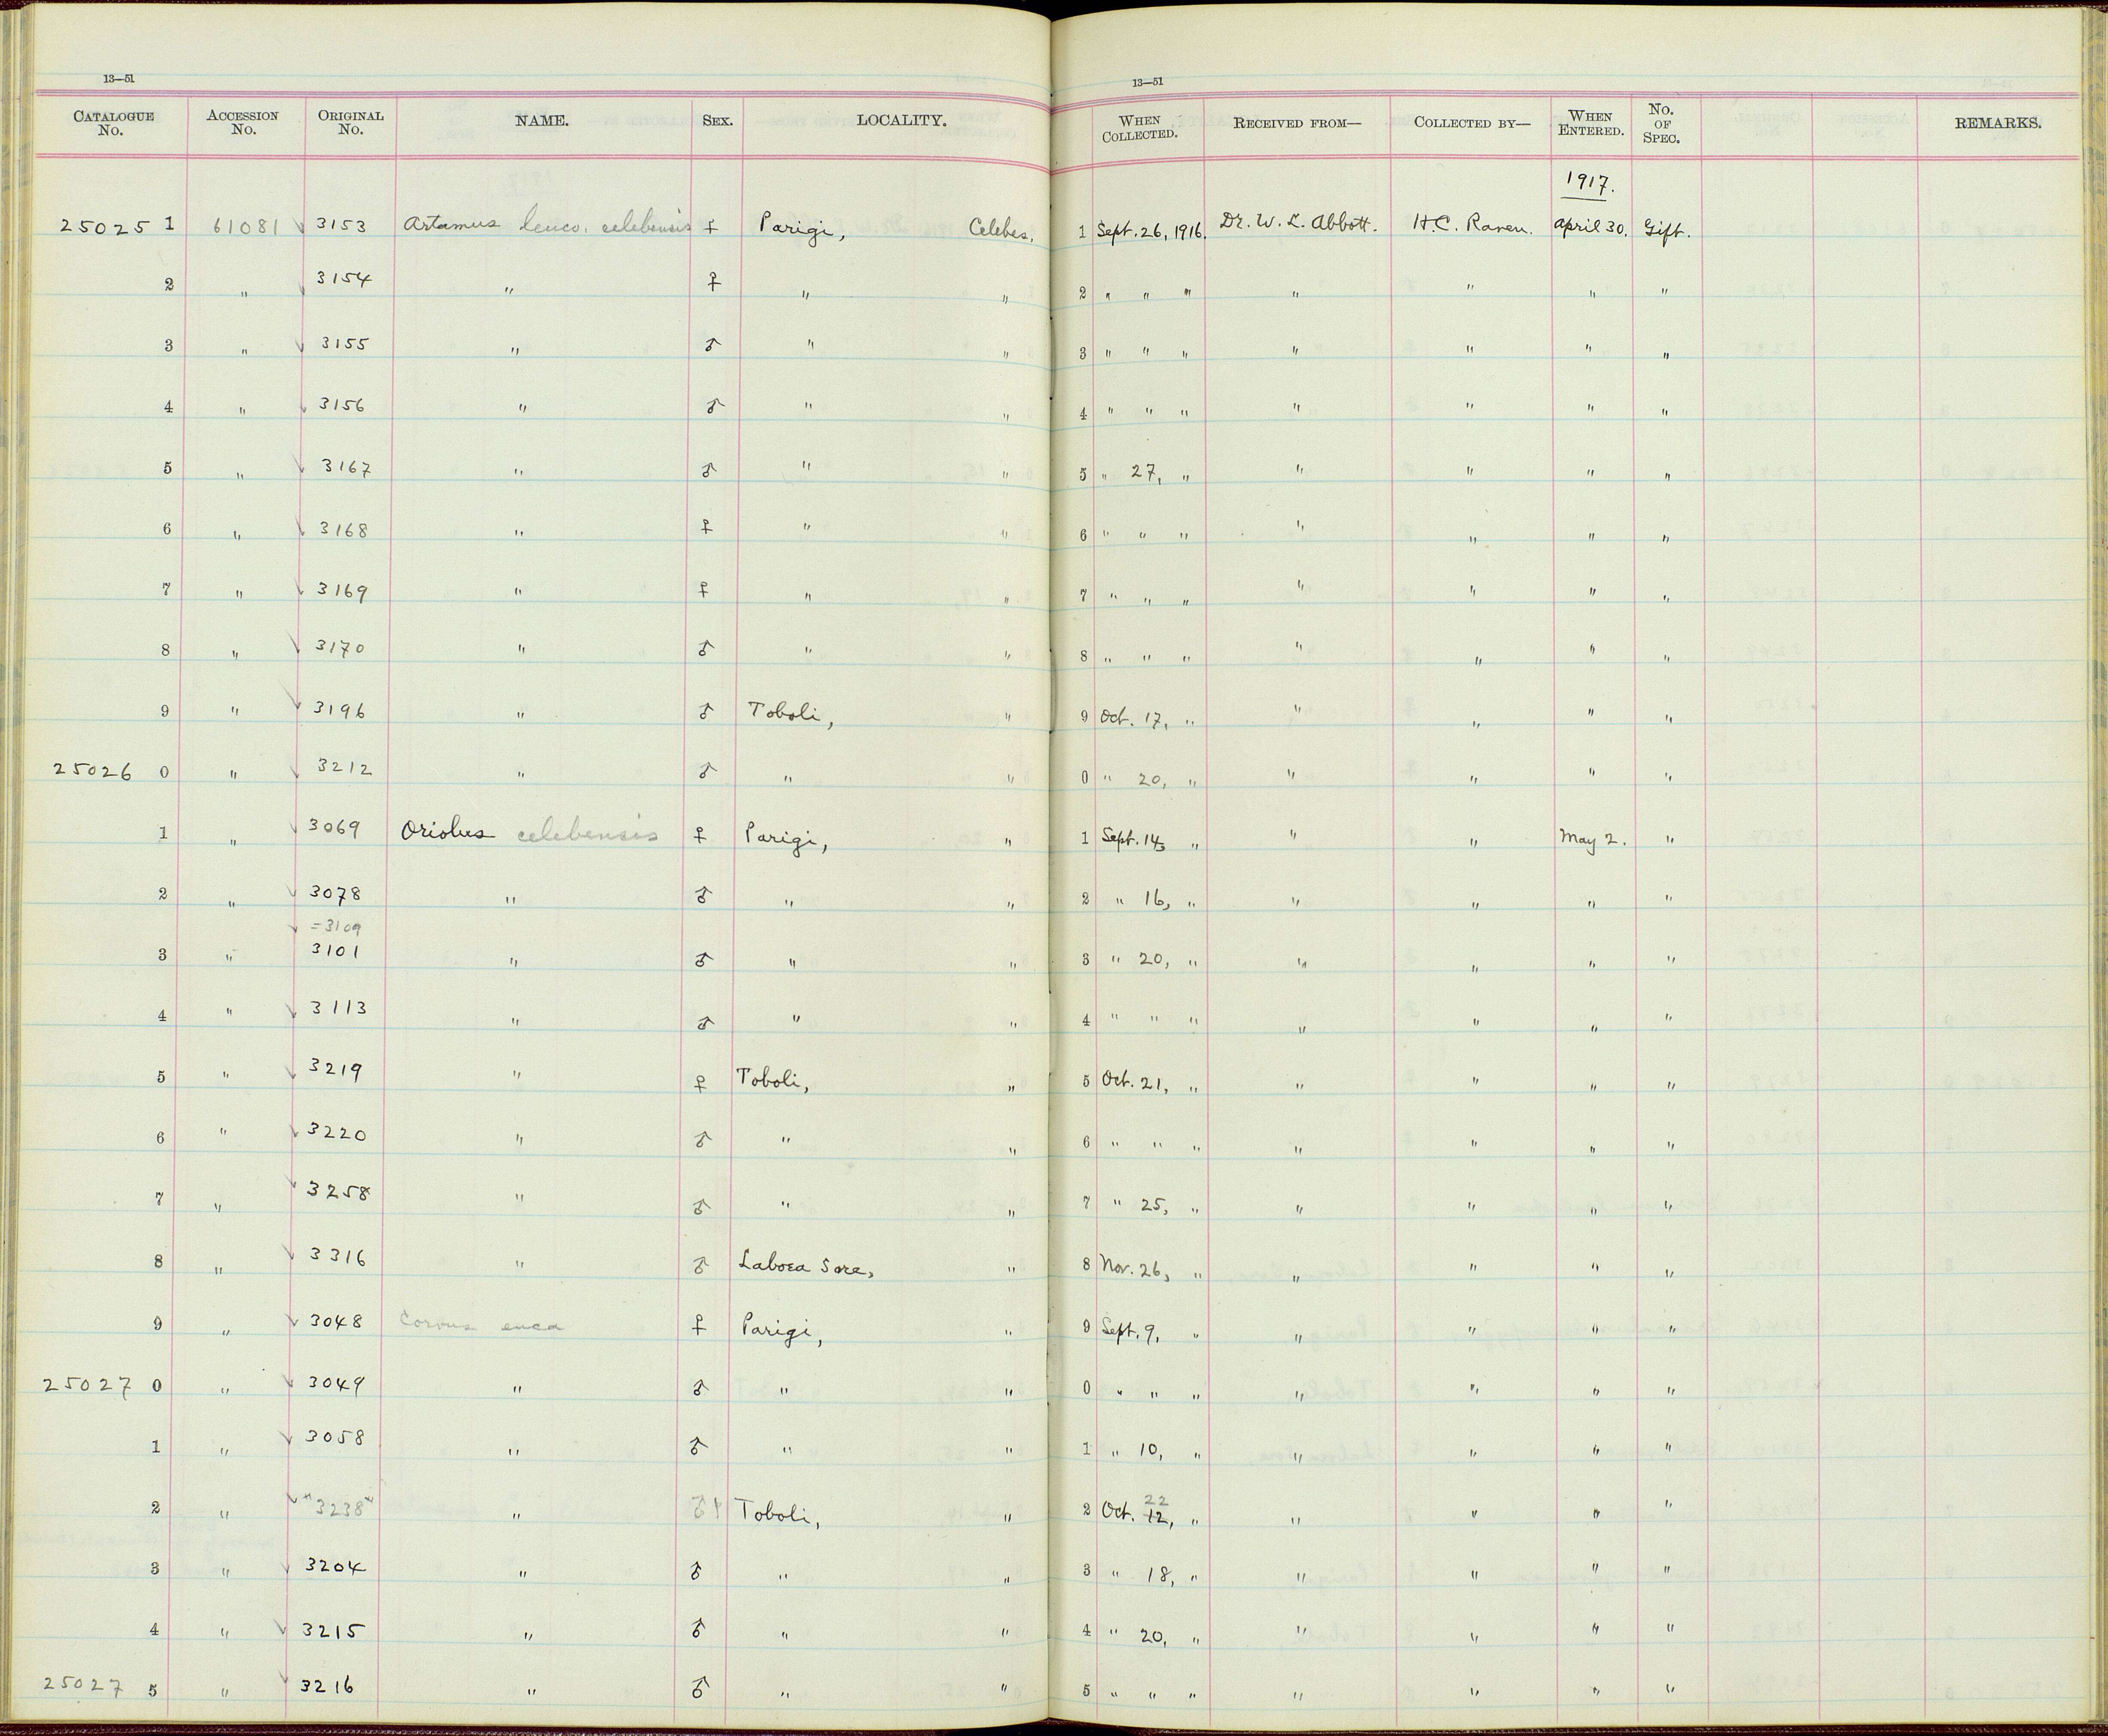 13—51
13—51
CATALOGUE No. ACCESSION No. ORIGINAL No. NAME. SEX. LOCALITY. WHEN COLLECTED. RECEIVED FROM— COLLECTED BY— WHEN ENTERED. No. OF SPEC. REMARKS.
1917.
25025 1 61081 3153 Artamus leuco. celebensis ♀ Parigi, Celebes. 1 Sept. 26, 1916. Dr. W. L. Abbott. H.C. Raven. April 30. Gift.
2 " 3154 " ♀ " " 2 " " " " " " "
3 " 3155 " ♂ " " 3 " " " " " " "
4 " 3156 " ♂ " " 4 " " " " " " "
5 " 3167 " ♂ " " 5 " 27, " " " " "
6 " 3168 " ♀ " " 6 " " " " " " "
7 " 3169 " ♀ " " 7 " " " " " " "
8 " 3170 " ♂ " " 8 " " " " " " "
9 " 3196 " ♂ Toboli, " 9 Oct. 17, " " " " "
25026 0 " 3212 " ♂ " " 0 " 20, " " " " "
1 " 3069 Oriolus celebensis ♀ Parigi, " 1 Sept. 14, " " " May 2. "
2 " 3078 " ♂ " " 2 " 16, " " " " "
=3109
3 " 3101 " ♂ " " 3 " 20, " " " " "
4 " 3113 " ♂ " " 4 " " " " " " "
5 " 3219 " ♀ Toboli, " 5 Oct. 21, " " " " "
6 " 3220 " ♂ " " 6 " " " " " " "
7 " 3258 " ♂ " " 7 " 25, " " " " "
8 " 3316 " ♂ Laboea Sore, " 8 Nov. 26, " " " " "
9 " 3048 Corvus enca ♀ Parigi, " 9 Sept. 9, " " " " "
25027 0 " 3049 " ♂ " " 0 " " " " " " "
1 " 3058 " ♂ " " 1 " 10, " " " " "
22
2 " "3238" " ♂ Toboli, " 2 Oct. 12, " " " " "
3 " 3204 " ♂ " " 3 " 18, " " " " "
4 " 3215 " ♂ " " 4 " 20, " " " " "
25027 5 " 3216 " ♂ " " 5 " " " " " " "